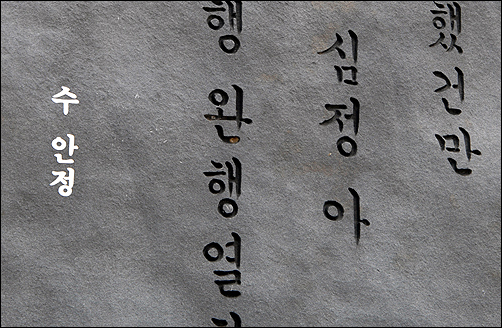 했건만
심정 아
행 완행열
수 안정